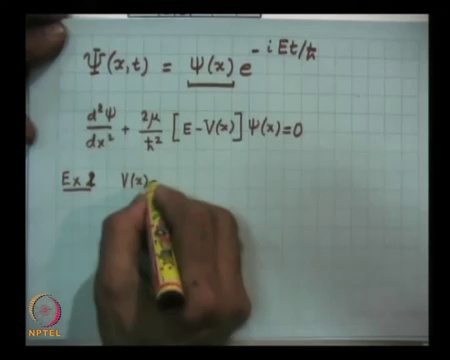 Ψ(x,t) = ψ(x) e^{-iEt/ħ}
d²ψ/dx² + 2μ/ħ² [E - V(x)] ψ(x) = 0
Ex 1 V(x)
NPTEL